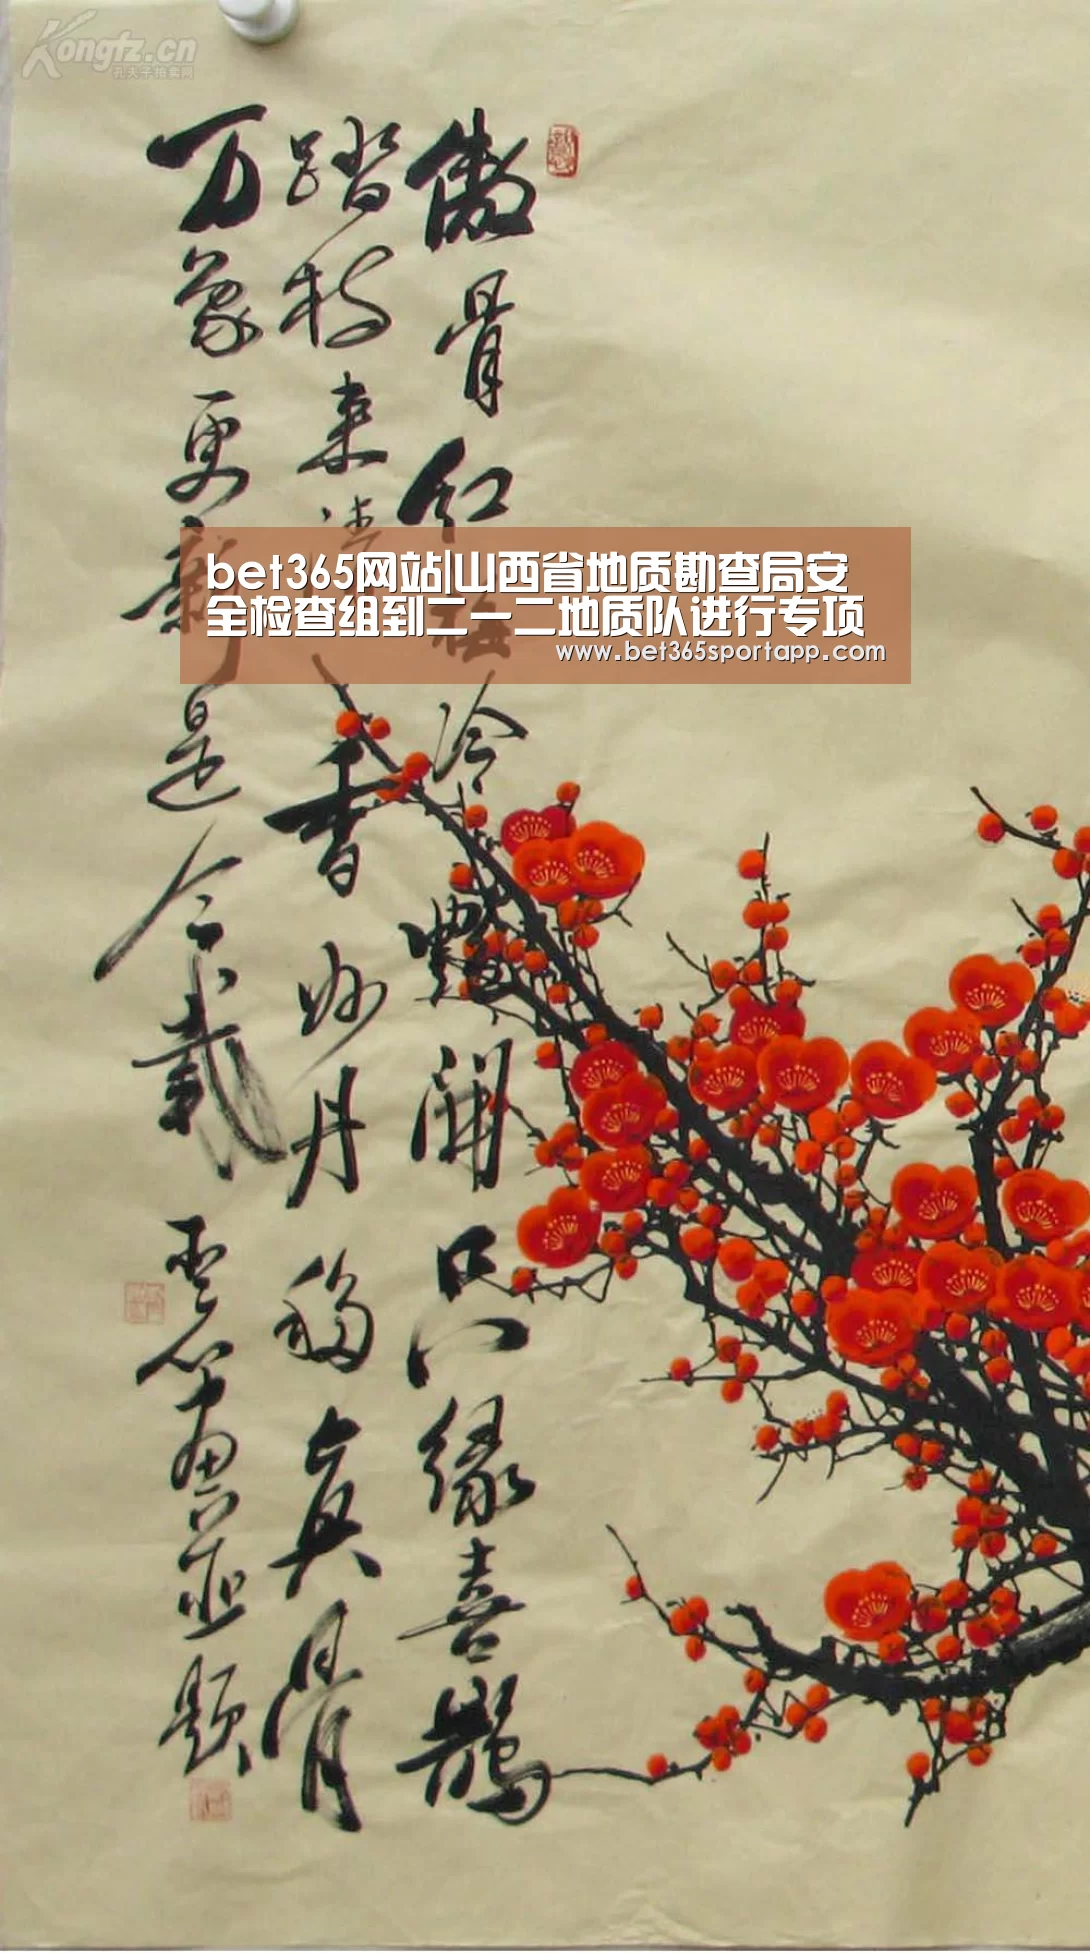 Kongfz.cn
孔夫子拍卖网
傲骨红梅冷艳开只缘喜鹊
踏枝来清香妙月移真骨
万象更新是今裁
云峰画并题
bet365网站|山西省地质勘查局安
全检查组到二一二地质队进行专项
www.bet365sportapp.com